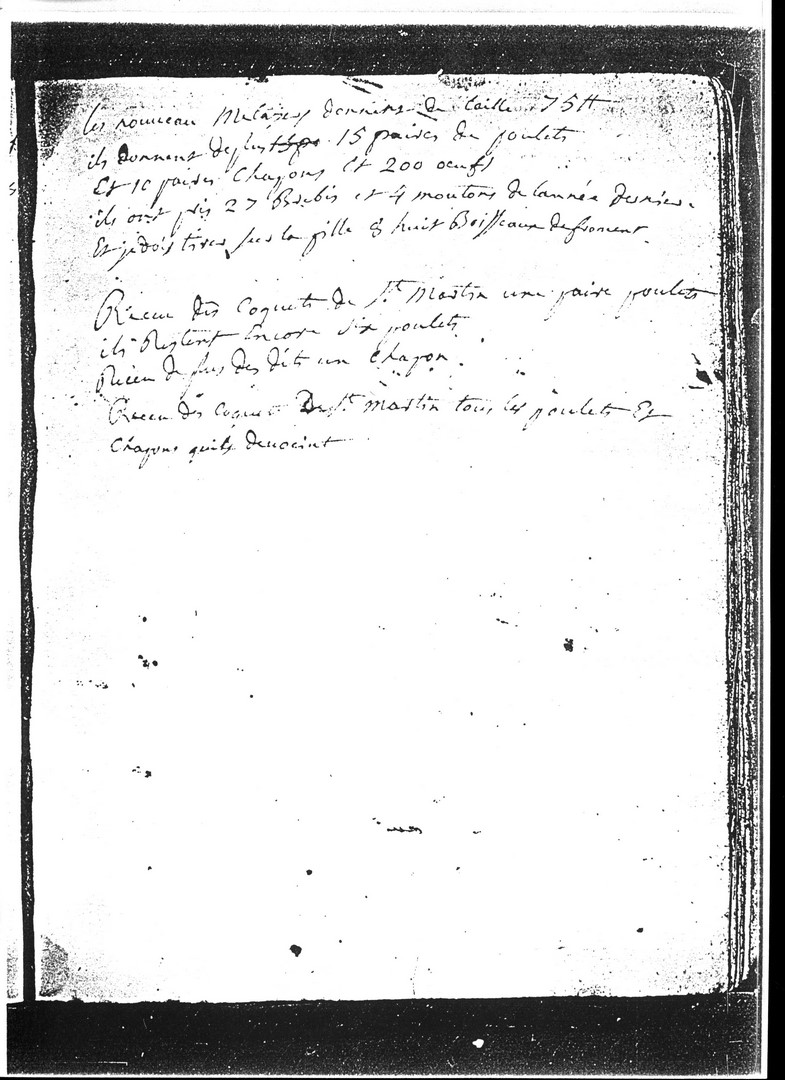 les nouveau Metayes donnent de taille 75 ₶
ils donnent de plus 15 paires de poulets
Et 10 paires Chapons Et 200 oeufs
ils ont pris 27 Brebis et 4 moutons de lannée derniere
Et je dois tirer sur la fille 8 huit Boisseaux de froment.
Receu des Coquets de St. Martin une paire poulets
ils Restent Encore six poulets
Receu de plus des dits un Chapon.
Receu des Coquets De St. martin tous les poulets Et
Chapons quils devoeint